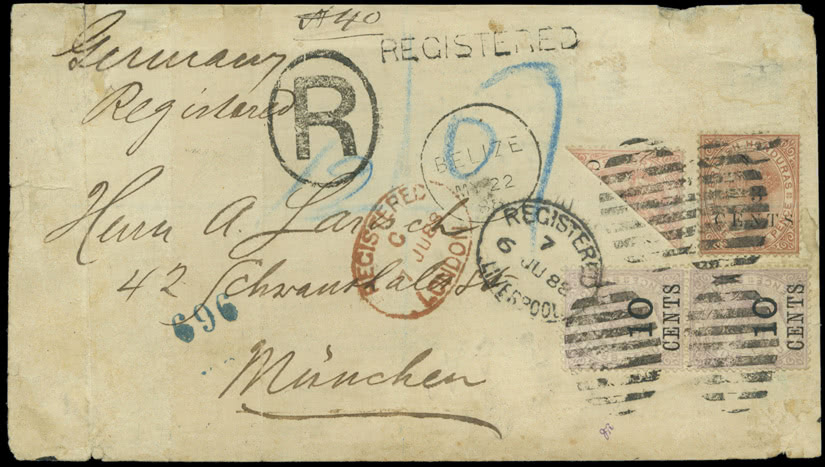 A 40
REGISTERED
Germany
Registered
R
BELIZE
MY 22
Herrn A. Larisch
REGISTERED
C
7 JU 88
LONDON
REGISTERED
7
6 JU 88
LIVERPOOL
42 Schwanthalerstr
696
München
CENTS
10
CENTS
10
CENTS